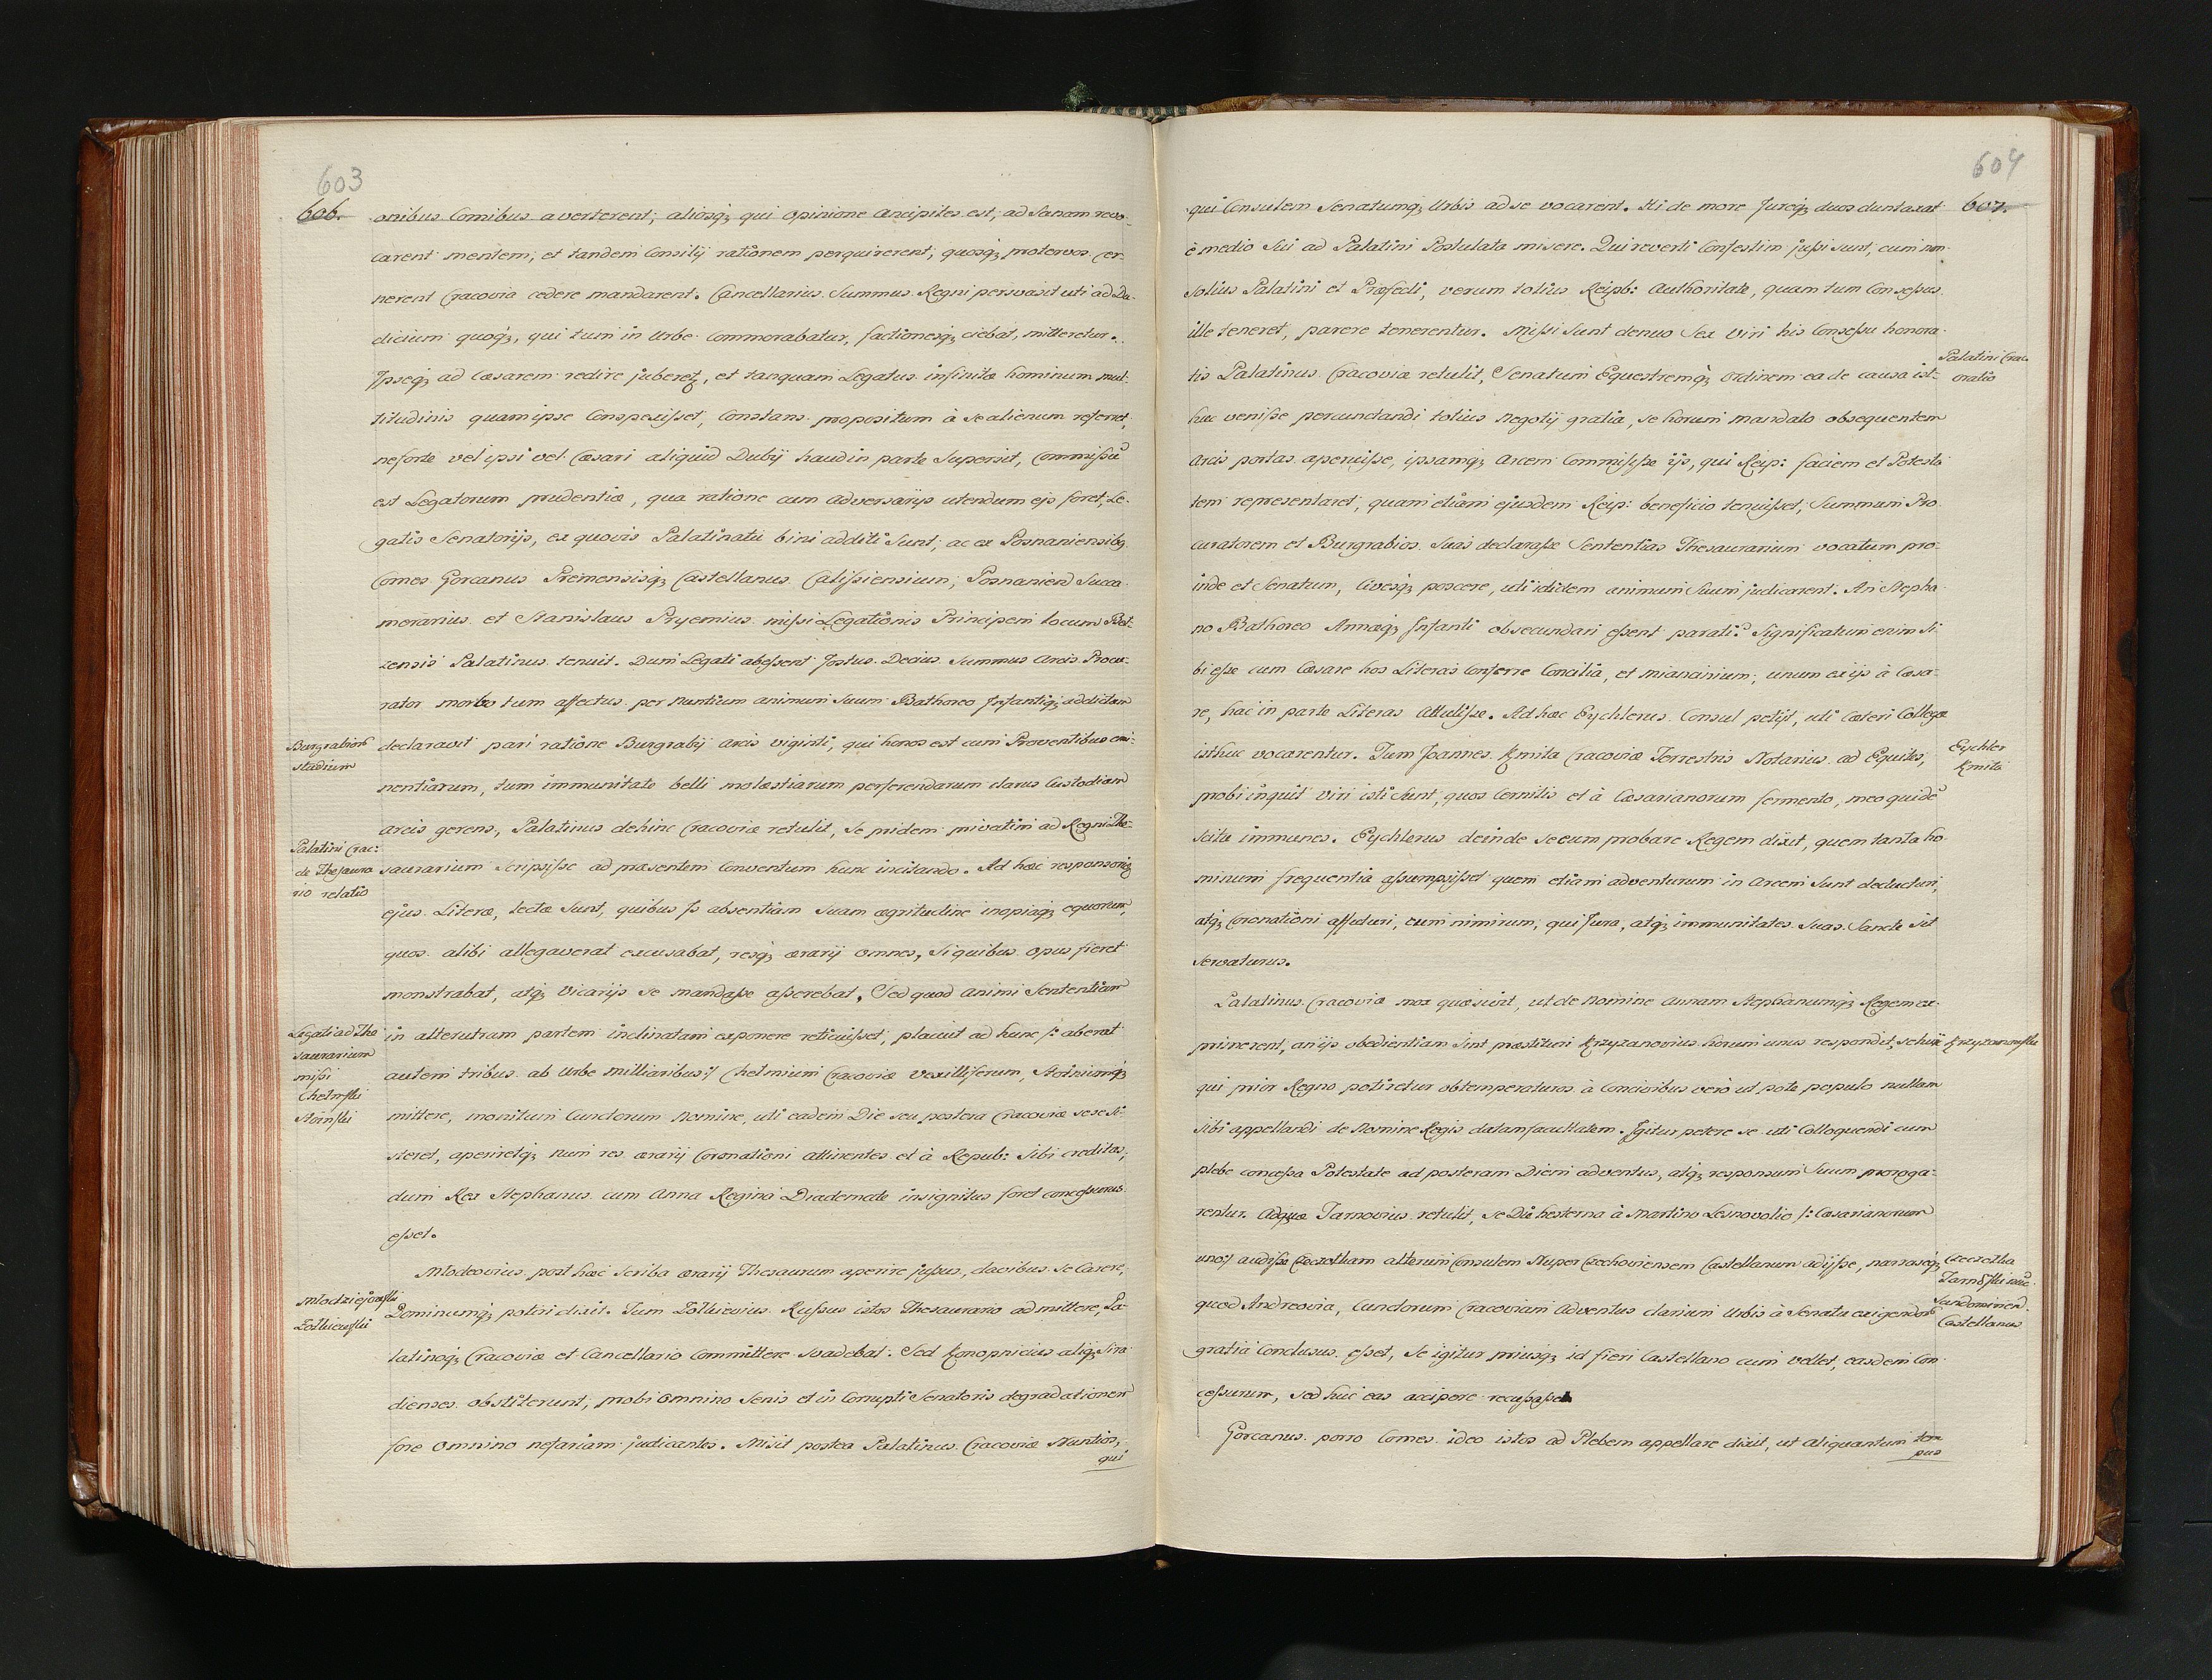 603
606.
onibus Comibus averterent; aliosq; qui opinione ancipites est, ad Sanam revo-
carent mentem; et tandem Consilij rationem perquirerent; quosq; protervos cer-
nerent Cracovia cedere mandarent. Cancellarius Summus Regni persvasit uti ad Du-
dicium quoq;, qui tum in Urbe commorabatur, factionesq; ciebat, mitteretur.
Ipseq; ad Cæsarem redire juberetz, et tanquam Legatus infinitæ hominum mul-
titudinis quam ipse Conspexisset, Constans propositum à se alienum referret,
ne forte vel ipsi vel Cæsari aliquid Dubij haud in parte Supersit, Commissũ
est Legatorum prudentiæ, qua ratione cum adversarijs utendum ejs foret, Le-
gatis Senatorijs, ex quovis Palatinatu bini additi Sunt; ac ex Posnaniensibq
Comes Gorcanus Premensisq; Castellanus Calissiensium; Posnanien Succa-
merarius et Stanislaus Pryemius missi Legationis Principem locum Bel-
zensis Palatinus tenuit. Dum Legati abessent Jostus Decius Summus Arcis Procu-
rator morbo tum affectus per Nuntium animum Suum Bathoreo Infantiq; addictum
Burgrabiorũ
studium
declaravit pari ratione Burgrabij arcis viginti, qui honos est cum Proventibus emi-
nentiarum, tum immunitate belli molæstiarum perferendarum clarus Custodiam
arcis gerens, Palatinus dehinc Cracoviæ retulit, Se pridem privatim ad Regni The-
Palatini Crac:
de Thesaura
rio relatio
saurarium Scripsisse ad præsentem Conventum hunc incitando. Ad hæc responsoriæ
ejus Literæ, lectæ Sunt, quibus Is absentiam suam ægritudine inopiaq; equorum,
quos alibi allegaverat excusabat, resq; ærarij omnes, Si quibus opus fieret
monstrabat, atq; Vicarijs se mandasse asserebat, Sed quod Animi Sententiam
Legati ad The
saurarium
missi
Chelmski
Stoinski
in alterutram partem inclinatam exponere reticuisset, placuit ad hunc /: aberat
autem tribus ab Urbe milliaribus :/ Chelmium Cracoviæ Vexilliferum, Stoiniumq;
mittere, monitum Cunctorum Nomine, uti eadem Die seu postera Cracoviæ sese Si-
steret, aperiretq; num res ærarij Coronationi attinentes et à Repub: Sibi creditas,
dum Rex Stephanus cum Anna Regino Diademate insignitus foret concessurus
esset.
Mlodziejowski
Zolkiewski
Mlodeovius post hæc Scriba ærarij Thesaurum aperire jussus, clavibus se Carere,
Dominumq; potiri dixit. Tum Zolkievius Russus istos Thesaurario admittere, Pa-
latinoq; Cracoviæ et Cancellario Committere suadebat. Sed Konopnicius aliiq; Sira-
dienses obstiterunt, probi omnino Senis et in Corrupti Senatoris degradationem
fore omnino nefariam judicantes. Misit postea Palatinus Cracoviæ Nuntios,
qui
604
607.
qui Consulem Senatumq; Urbis ad se vocarent. Hi de more Jureq; duos duntaxat
è medio Sui ad Palatini Postulata misere. Qui reverti Confestim jussi sunt, cum non
Solius Palatini et Præfecti, verum totius Reipb: Authoritate, quam tum Consessus
ille teneret, parere tenerentur. Missi Sunt denuo Sex Viri his Consessu honora-
Palatini Crac
oratio
tis Palatinus Cracoviæ retulit, Senatum Equestremq; Ordinem ea de causa ist-
huc venisse percunctandi totius Negotij gratia, se horum mandato obsequentem
Arcis portas aperuisse, ipsamq; Arcem Commisisse ijs, qui Reip: faciem et Potesta-
tem representaret, quam etiam ejusdem Reip: beneficio tenuisset, Summum Pro-
curatorem et Burgrabios Suas declarasse Sententias Thesaurarium vocatum pro-
inde et Senatum, Civesq; poscere, uti itidem animum Suum judicarent. An Stepha-
no Bathoreo Annæq; Infanti obsecundari essent parati? Significatum enim Si-
bi esse cum Cæsare hos Literas Conferre Concilia, et mianinium; unum ex ijs à Cæsa-
re, hac in parte Literas Attulisse. Ad hæc Eychlerus Consul petijt, uti Cæteri Collegæ
Eychler
Kmita
isthuc vocarentur. Tum Joannes Kmita Cracoviæ Terrestris Notarius ad Equites,
probi inquit Viri isti Sunt, quos Cernitis et à Cæsarianorum fermento, meo quidẽ
Scitu immunes. Eychlerus deinde Secum probare Regem dixit, quem tanta ho-
minum frequentia assumpsisset quem etiam adventurum in Arcem Sunt deducturi,
atq; Coronationi assuturi, cum nimirum, qui Jura, atq; immunitates Suas Sancte Sit
servaturus.
Palatinus Cracoviæ mox quæsivit, ut de Nomine Annam Stephanumq; Regem ex-
primerent, an ijs obedientiam Sint præstituri Krzyzanovius horum unus respondit, se huic
Krzyzanowski
qui prior Regno potiretur obtemperaturos à Concivibus verò ut pote populo nullam
Sibi appellandi de Nomine Regis datam facultatem. Igitur petere se uti Colloquendi cum
plebe concessa Potestate ad posteram Diem adventus, atq; responsum Suum proroga-
rentur. Adquæ Tarnovius retulit, se Die hesterna à Martino Lesnovolio /: Cæsarianorum
uno :/ audisse Czeczotham alterum Consulem Nuper Czechoviensem Castellanum adijsse, narrasseq;
Czeczotha
Tarnowski
Sandomirien
Castellanus
quod Andreovia, Cunctorum Cracoviam Adventus clavium Urbis à Senatu exigendarũ
gratia Conclusus esset, Se igitur priusq; id fieri Castellano cum vellet, easdem Con-
cessurum, Sed huic eas accipere recusasset
Gorcanus porro Comes ideo istos ad Plebem appellare dixit, ut aliquantum tem
pus